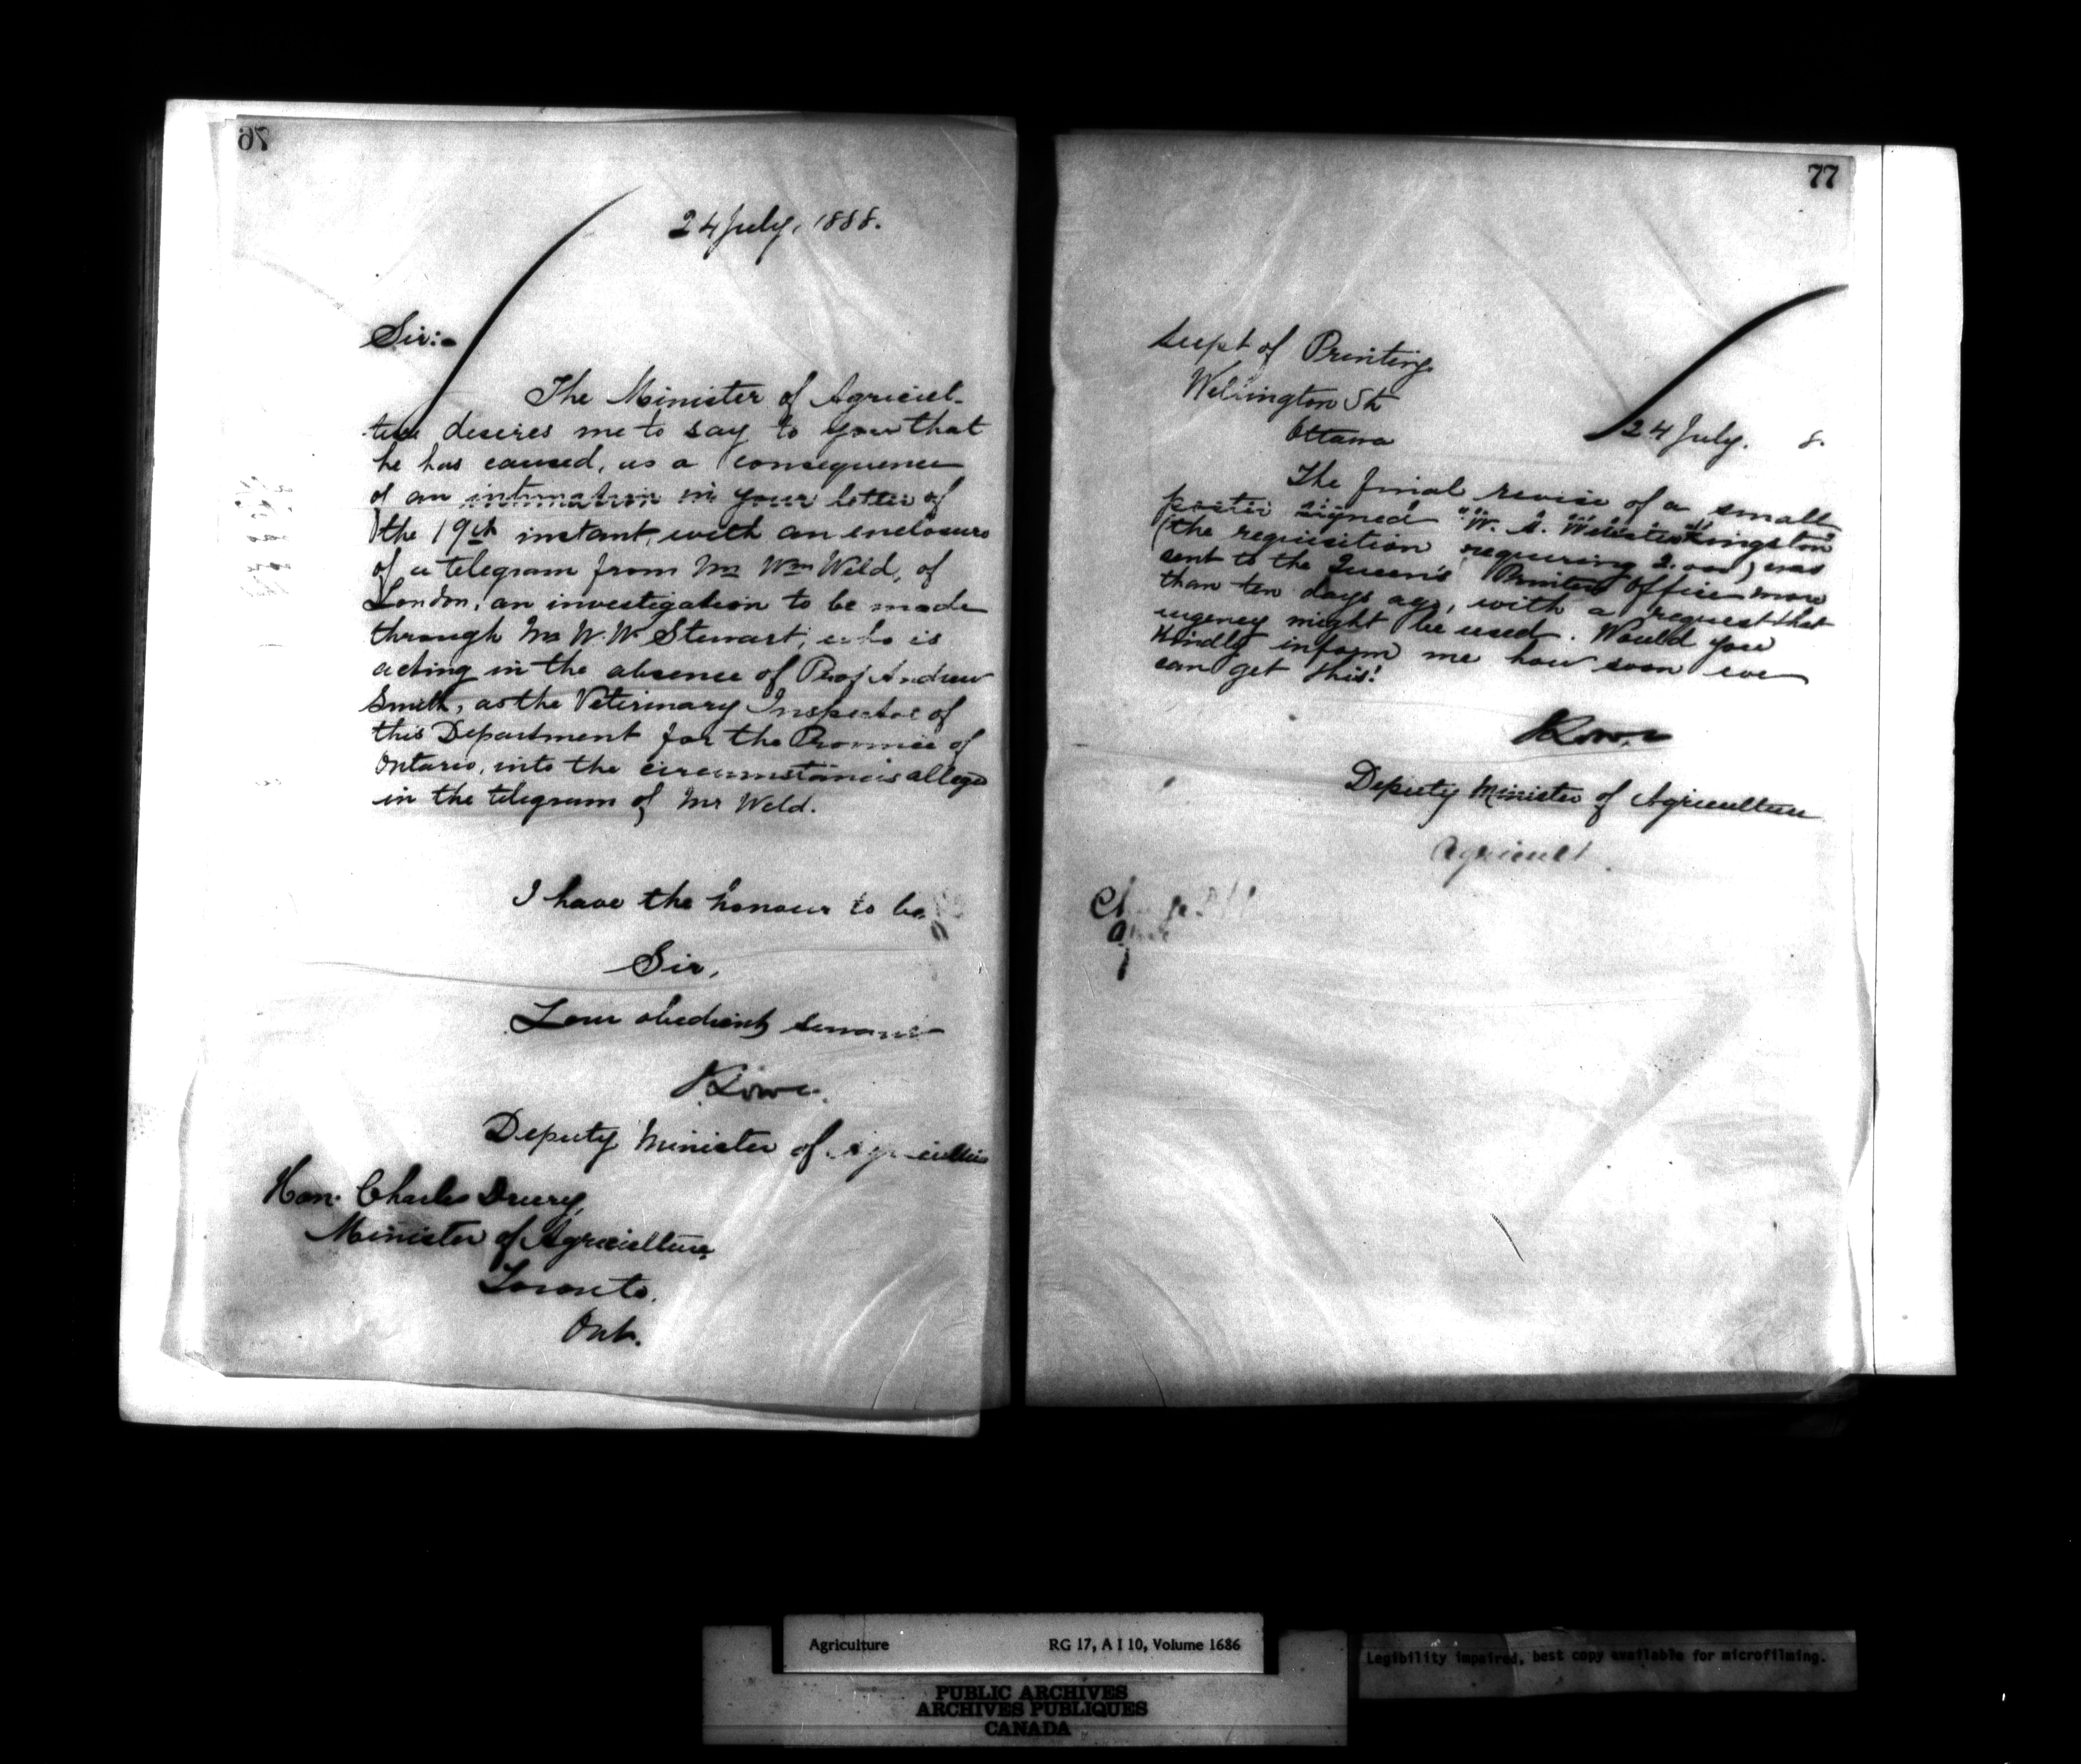 76
24 July, 1888.
Sir:-
The Minister of Agricul-
ture desires me to say to you that
he has caused, as a consequence
of an intimation in your letter of
the 19th instant, with an enclosure
of a telegram from Mr Wm Weld, of
London, an investigation to be made
through Mr W. W. Stewart, who is
acting in the absence of Prof Andrew
Smith, as the Veterinary Inspector of
this Department for the Province of
Ontario, into the circumstances alleged
in the telegram of Mr Weld.
I have the honour to be,
Sir,
Your obedient servant
J Lowe.
Deputy Minister of Agriculture
Hon. Charles Drury,
Minister of Agriculture,
Toronto.
Ont.
77
Supt of Printing
Wellington St
Ottawa
24 July. 8.
The final revise of a small
poster signed "W. A. Webster Kingston"
(the requisition requiring 2.000) was
sent to the Queen's Printers Office more
than ten days ago, with a request that
urgency might be used. Would you
kindly inform me how soon we
can get this?
J Lowe
Deputy Minister of Agriculture
Agricult
Agriculture
RG 17, A I 10, Volume 1686
Legibility impaired, best copy available for microfilming.
PUBLIC ARCHIVES
ARCHIVES PUBLIQUES
CANADA